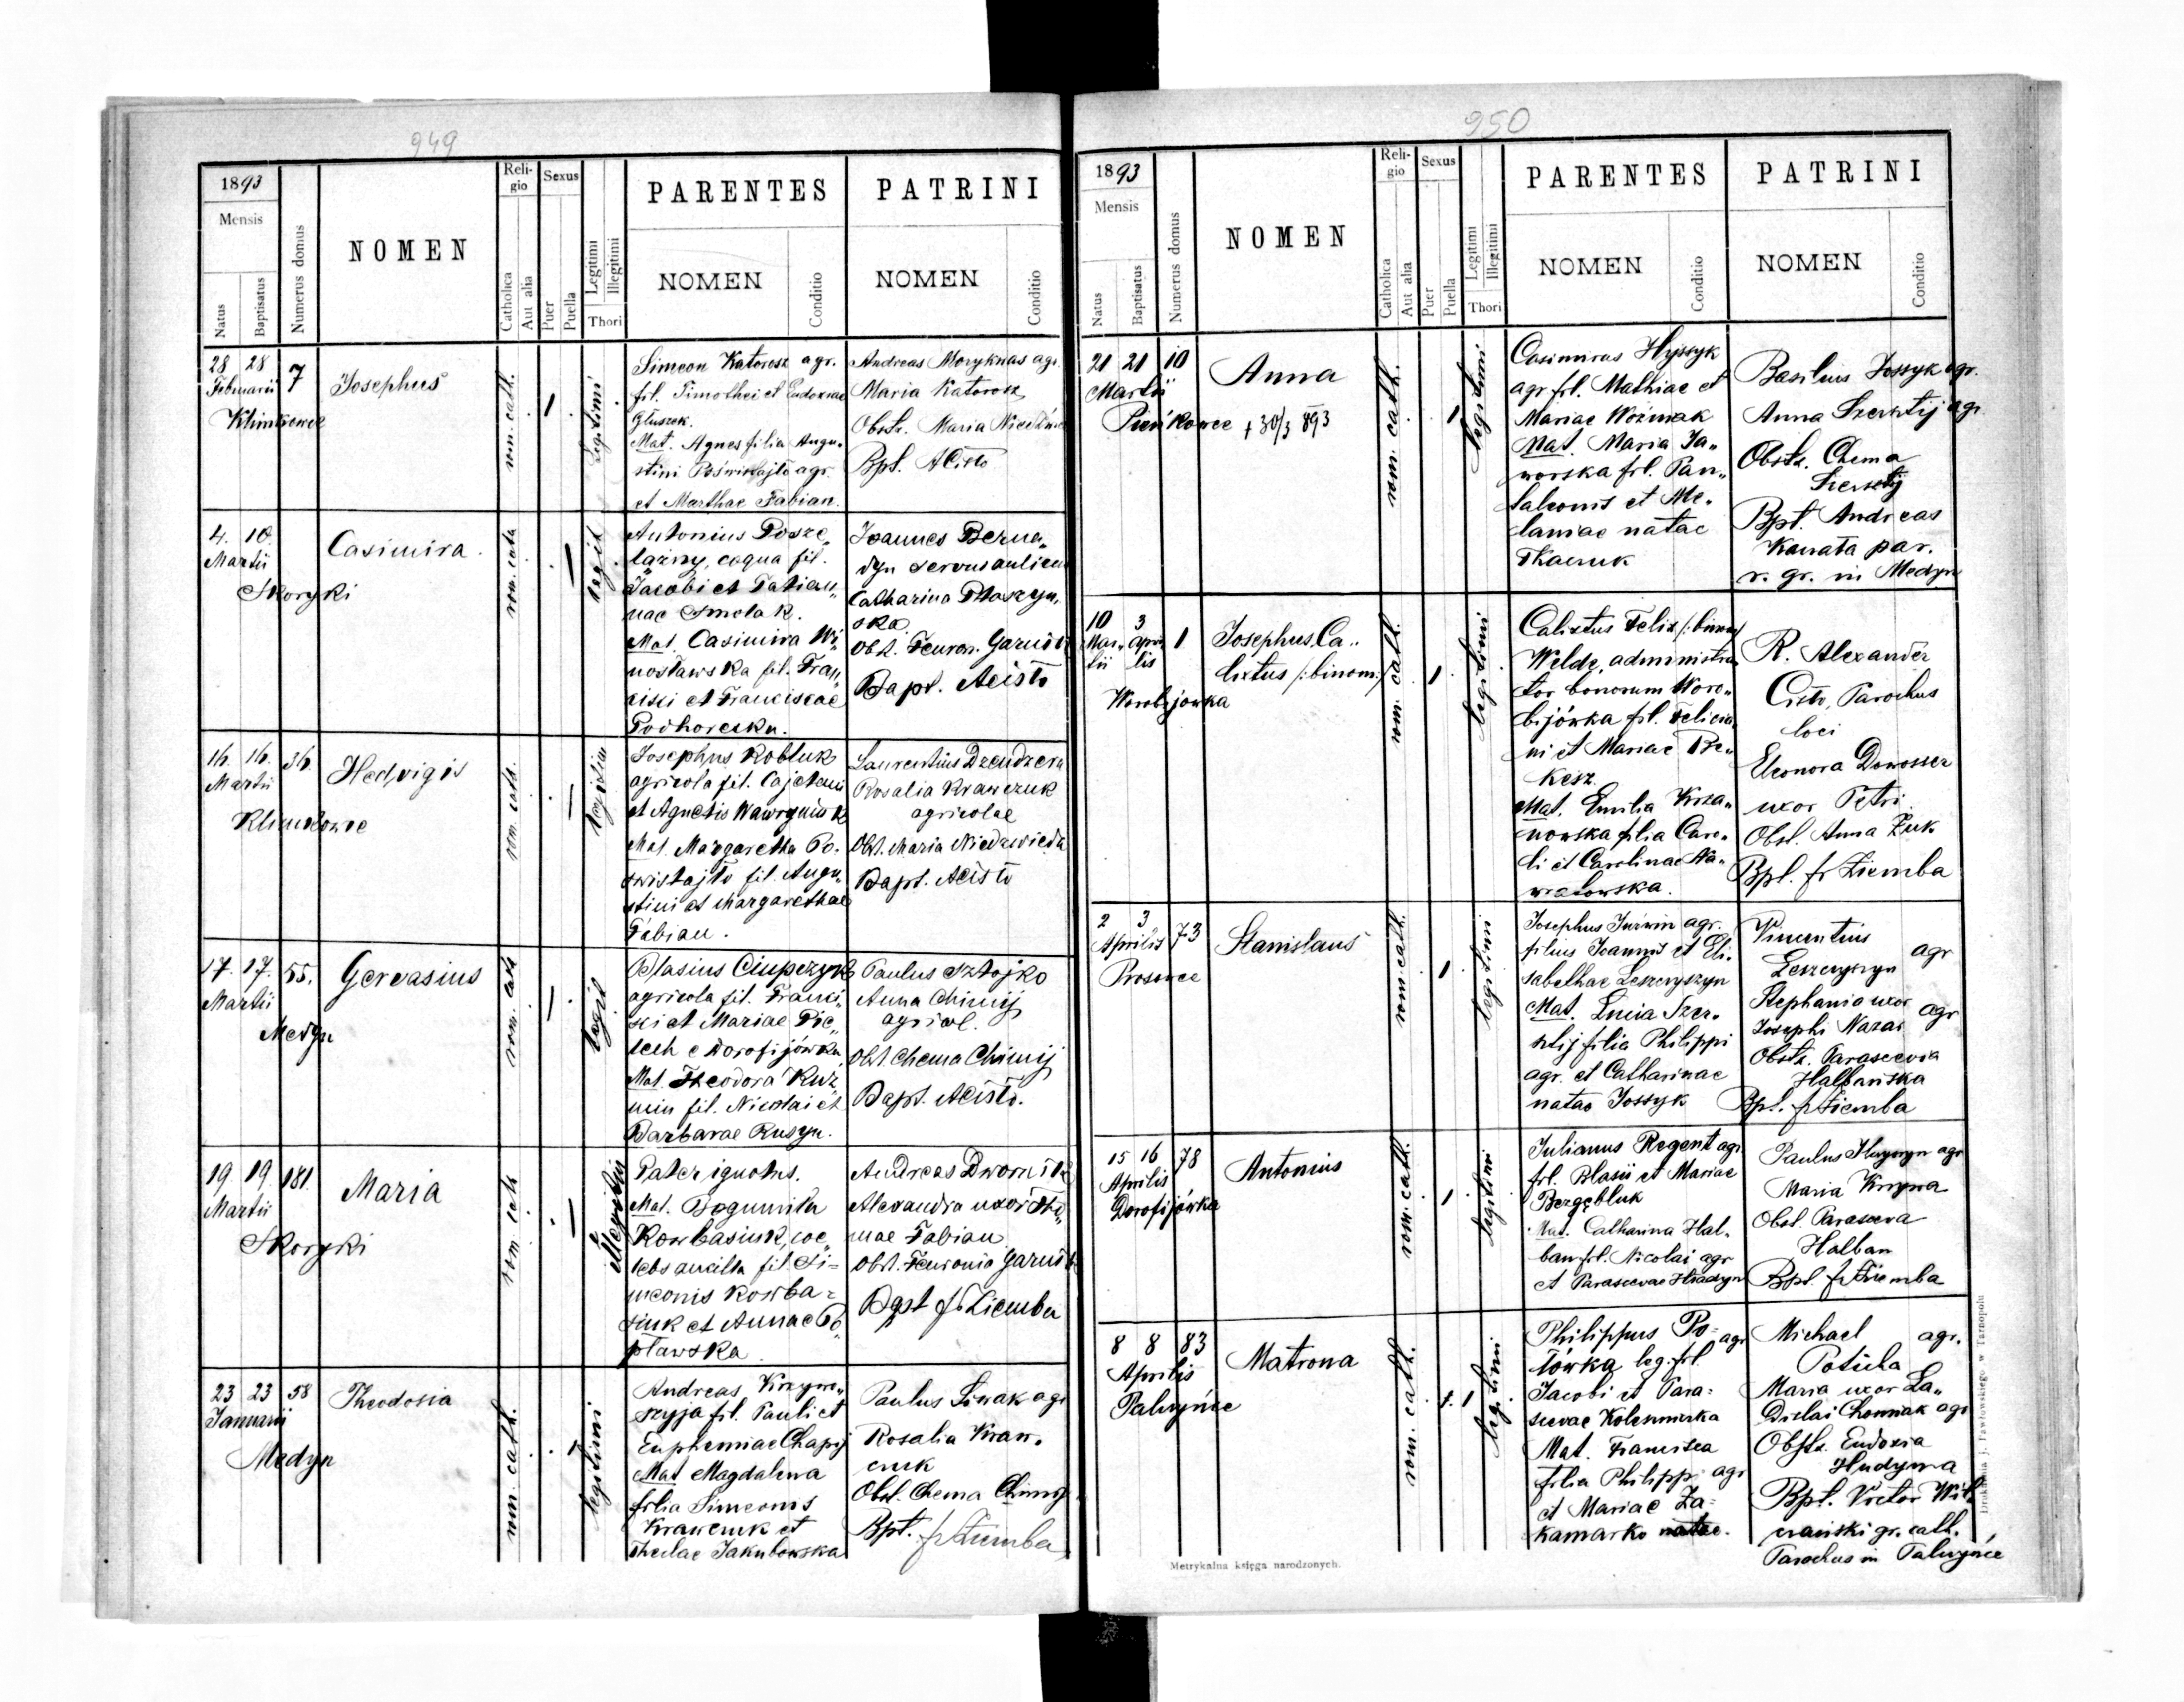 949
1893
Mensis
Natus
Baptisatus
Numerus domus
NOMEN
Religio
Catholica
Aut alia
Sexus
Puer
Puella
Legitimi
Illegitimi
Thori
PARENTES
NOMEN
Conditio
PATRINI
NOMEN
Conditio
28 28 7
Februarii
Klimkowce
Josephus
rom. cath.
1
Legitimi
Simeon Katorosz agr.
fil. Timothei et Eudoxiae
Głuszek.
Mat. Agnes filia Augu„
stini Poświstajło agr.
et Marthae Fabian.
Andreas Moryknas agr.
Maria Katorosz
Obstr. Maria
Bpt. ACisło
4. 10.
Martii
Skoryki
Casimira.
rom. cath
legit
Antonius Posze„
lazny, coqua fil.
Jacobi et Tatian„
nae Smolak.
Mat. Casimira Wi„
nosławska fil. Fran„
cisci et Franciscae
Podhorecka.
Joannes Berna„
dyn servus aulicus
Catharina Ptaszyn„
ska
Obst. Feuron. Garnis
Bapt. ACisło
16. 16. 36.
Martii
Klimkowce
Hedvigis
rom. cath.
legitim
Josephus Kobluk
agricola fil. Cajetani
et Agnetis Wawryniuk
Mat. Margaretha Po„
swistajło fil. Augu„
stini et Margarethae
Fabian.
Laurentius Dzendzera
Rosalia Krawczuk
agricolae
Obst. Maria Niedzwiedz
Bapt. ACisło
17. 17. 55.
Martii
Medyn
Gervasius
rom. cath
legit
Blasius Ciupczyk
agricola fil. Franci„
sci et Mariae Pie„
tech e Dorofijówka
Mat. Theodora Kuź„
min fil. Nicolai et
Barbarae Rusyn.
Paulus Sztojko
Anna Chimij
agricol.
Obst Chema Chimij
Bapt. ACisło.
19. 19. 181.
Martii
Skoryki
Maria
rom cath
illegitim
Pater ignotus.
Mat. Bogumila
Kowbasiuk, coe„
lebs ancilla fil. Si=
meonis Kowba=
siuk et Annae Po„
pławska
Andreas
Alexandra uxor Tho„
mae Fabian
Obst. Feuronia Garnis
Bpst fr Ziemba
23 23 58
Januarii
Medyn
Theodosia
rom. cath.
1
legitimi
Andreas Krzywo„
szyja fil. Pauli et
Euphemiae Chapij
Mat Magdalena
filia Simeonis
Krawczuk et
Theclae Jakubowska
Paulus Siwak agr
Rosalia Kraw„
czuk
Obst. Chema Chimij
Bpt. fr Ziemba
950
1893
Mensis
Natus
Baptisatus
Numerus domus
NOMEN
Religio
Catholica
Aut alia
Sexus
Puer
Puella
Legitimi
Illegitimi
Thori
PARENTES
NOMEN
Conditio
PATRINI
NOMEN
Conditio
21 21 10
Martii
Pieńkowce + 30/3 893
Anna
rom. cath.
1
legitimi
Casimirus Hyssyk
agr fil. Mathiae et
Mariae Woźniak
Mat. Maria Ja„
worska fil. Pan„
taleonis et Me„
laniae natae
Tkaczuk
Basilius Jossyk agr.
Anna Szersztij agr
Obstr. Chema
Szersztij
Bpt. Andreas
Kanata par.
r. gr. in Medyn
10 3 1
Mar„ Apri„
tii lis
Worobijowka
Josephus Ca„
lixtus /: binom:/
rom. cath.
1
legitimi
Calixtus Felix /: binom/
Welde, administra
tor bonorum Woro„
bijówka fil. Felicia
ni et Mariae Pre„
kesz.
Mat. Emilia Krza„
nowska filia Caro„
li et Carolinae Na„
wratowska.
R. Alexander
Cisło, Parochus
loci
Eleonora Donosser
uxor Petri.
Obst. Anna Żuk
Bpt. fr Ziemba
2 3 73
Aprilis
Prosowce
Stanislaus
rom cath.
1
legitimi
Josephus Jurwin agr.
filius Joannis et Eli„
sabethae Leszczyszyn
Mat. Lucia Szer„
sztij filia Philippi
agr. et Catharinae
natae Jossyk
Vincentius agr
Leszczyszyn
Stephania uxor agr
Josephi Nazar
Obstr. Parascevia
Halbańska
Bpt. fr Ziemba
15 16 78
Aprilis
Dorofijówka
Antonius
rom. cath.
1
legitimi
Julianus Regent agr
fil. Blasii et Mariae
Bezgębluk
Mat. Catharina Hal„
ban fil. Nicolai agr
et Parascevae Hradyn
Paulus agr
Maria
Obst. Parasceva
Halban
Bpt. fr Ziemba
8 8 83
Aprilis
Palczyńce
Matrona
rom. cath.
1
legitimi
Philippus Po= agr
tówka leg. fil.
Jacobi et Para=
scevae Kolesnicka
Mat. Francisca
filia Philippi agr
et Mariae Za=
kamarko natae.
Michael agr.
Poticha
Maria uxor La„
dislai Chomiak agr
Obstr. Eudoxia
Hudyma
Bpt. Victor Wil„
czański gr. cath.
Parochus in Palczyńce
Metrykalna księga narodzonych.
Drukarnia J. Pawłowskiego w Tarnopolu